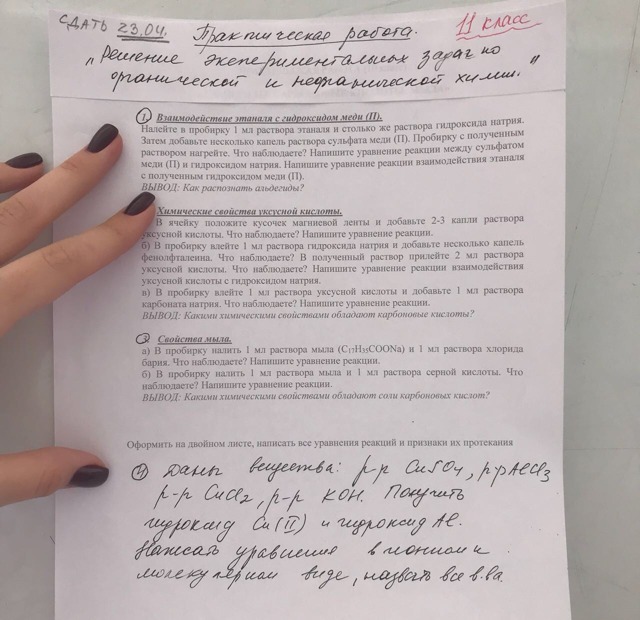 СДАТЬ 23.04. Практическая работа. 11 класс
„Решение экспериментальных задач по
органической и неорганической химии."
1. Взаимодействие этаналя с гидроксидом меди (II).
Налейте в пробирку 1 мл раствора этаналя и столько же раствора гидроксида натрия.
Затем добавьте несколько капель раствора сульфата меди (II). Пробирку с полученным
раствором нагрейте. Что наблюдаете? Напишите уравнение реакции между сульфатом
меди (II) и гидроксидом натрия. Напишите уравнение реакции взаимодействия этаналя
с полученным гидроксидом меди (II).
ВЫВОД: Как распознать альдегиды?
Химические свойства уксусной кислоты.
В ячейку положите кусочек магниевой ленты и добавьте 2-3 капли раствора
уксусной кислоты. Что наблюдаете? Напишите уравнение реакции.
б) В пробирку влейте 1 мл раствора гидроксида натрия и добавьте несколько капель
фенолфталеина. Что наблюдаете? В полученный раствор прилейте 2 мл раствора
уксусной кислоты. Что наблюдаете? Напишите уравнение реакции взаимодействия
уксусной кислоты с гидроксидом натрия.
в) В пробирку влейте 1 мл раствора уксусной кислоты и добавьте 1 мл раствора
карбоната натрия. Что наблюдаете? Напишите уравнение реакции.
ВЫВОД: Какими химическими свойствами обладают карбоновые кислоты?
3. Свойства мыла.
а) В пробирку налить 1 мл раствора мыла (C₁₇H₃₅COONa) и 1 мл раствора хлорида
бария. Что наблюдаете? Напишите уравнение реакции.
б) В пробирку налить 1 мл раствора мыла и 1 мл раствора серной кислоты. Что
наблюдаете? Напишите уравнение реакции.
ВЫВОД: Какими химическими свойствами обладают соли карбоновых кислот?
Оформить на двойном листе, написать все уравнения реакций и признаки их протекания
4 Даны вещества: р-р CuSO₄, р-р AlCl₃
р-р CuCl₂, р-р KOH. Получить
гидроксид Cu(II) и гидроксид Al.
Написать уравнения в ионном и
молекулярном виде, назвать все в-ва.